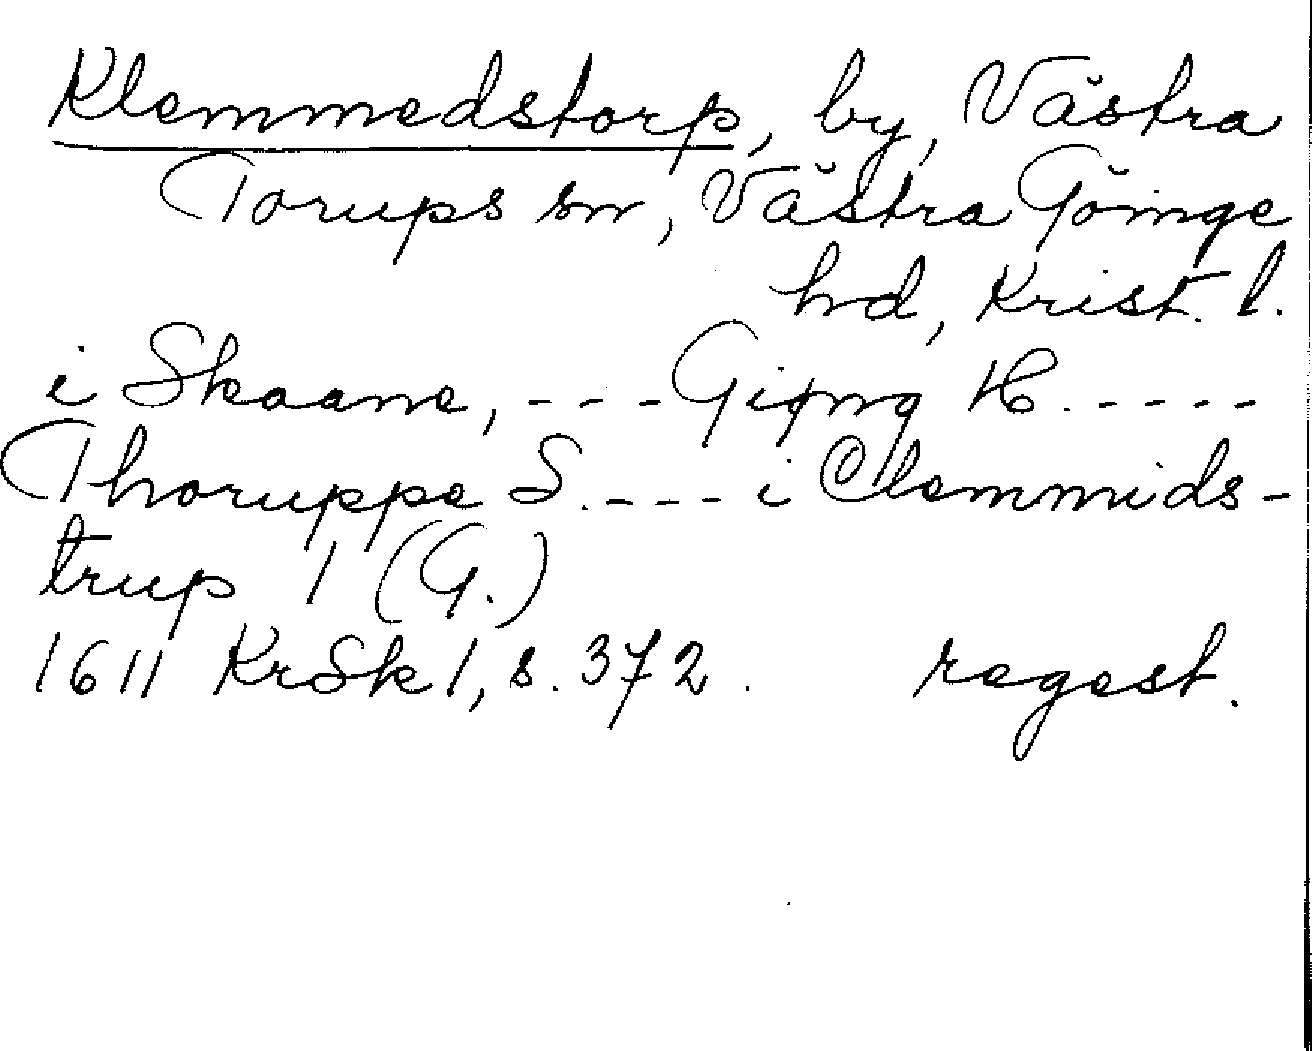 Klemmedstorp, by, Västra
Torups sn, Västra Göinge
hd, Krist. l.
i Skaane, - - - Giøng H. - - - - -
Thoruppe S. - - - - i Clemmids-
trup 1 (G.)
1611 KrSk 1, s. 372. regest.